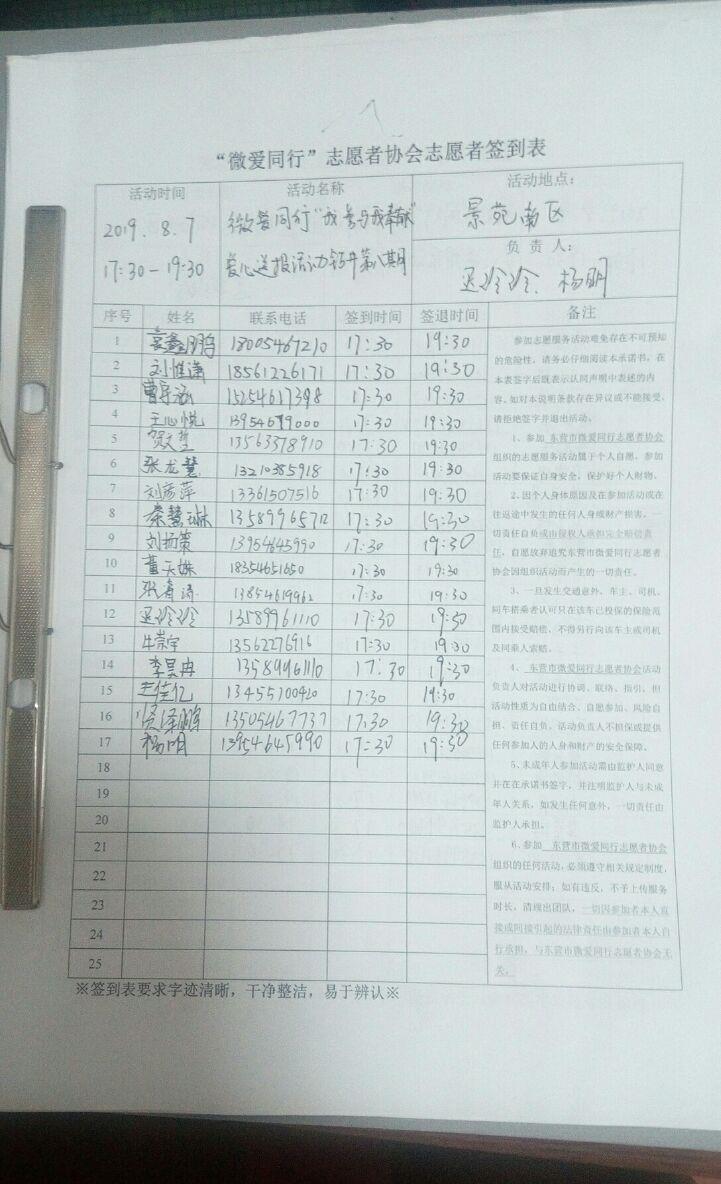 “微爱同行”志愿者协会志愿者签到表
活动时间
2019.8.7
17:30-19:30
活动名称
微爱同行“我参与我奉献”
爱心送报活动 第八期
活动地点:
景苑南区
负责人:
杨明
序号 姓名 联系电话 签到时间 签退时间 备注
1 鑫鹏 18005467210 17:30 19:30
2 刘惟潇 18561226171 17:30 19:30
3 曹 15254617398 17:30 19:30
4 王心悦 13954699000 17:30 19:30
5 贺 13563378910 17:30 19:30
6 张龙慧 13210385918 17:30 19:30
7 刘彦萍 13361507516 17:30 19:30
8 秦慧琳 17:30 19:30
9 刘扬策 13954645990 17:30 19:30
10 董天姝 18354651650 17:30 19:30
11 张 13854619962 17:30 19:30
12 13589961110 17:30 19:30
13 牛崇宇 13562276916 17:30 19:30
14 李昊冉 13589961110 17:30 19:30
15 王佳亿 13455100420 17:30 19:30
16 泽鹏 13505467737 17:30 19:30
17 杨明 13954645990 17:30 19:30
18
19
20
21
22
23
24
25
参加志愿服务活动难免存在不可预知
的危险性，请务必仔细阅读本承诺书，在
本表签字后既表示认同声明中表述的内
容，如对本说明条款存在异议或不能接受，
请拒绝签字并退出活动。
1、参加 东营市微爱同行志愿者协会
组织的志愿服务活动属于个人自愿，参加
活动要保证自身安全，保护好个人财物。
2、因个人身体原因及在参加活动或在
往返途中发生的任何人身或财产损害，一
切责任自负或由侵权人承担完全赔偿责
任，自愿放弃追究东营市微爱同行志愿者
协会因组织活动而产生的一切责任。
3、一旦发生交通意外，车主、司机、
同车搭乘者认可只在该车已投保的保险范
围内接受赔偿，不得另行向该车主或司机
及同乘人索赔。
4、 东营市微爱同行志愿者协会活动
负责人对活动进行协调、联络、指引，但
活动性质为自由结合、自愿参加、风险自
担、责任自负，活动负责人不担保或提供
任何参加人的人身和财产的安全保障。
5、未成年人参加活动需由监护人同意
并在在承诺书签字，并注明监护人与未成
年人关系，如发生任何意外，一切责任由
监护人承担。
6、参加 东营市微爱同行志愿者协会
组织的任何活动，必须遵守相关规定制度，
服从活动安排；如有违反，不予上传服务
时长，清理出团队，一切因参加者本人直
接或间接引起的法律责任由参加者本人自
行承担，与东营市微爱同行志愿者协会无
关。
※签到表要求字迹清晰，干净整洁，易于辨认※